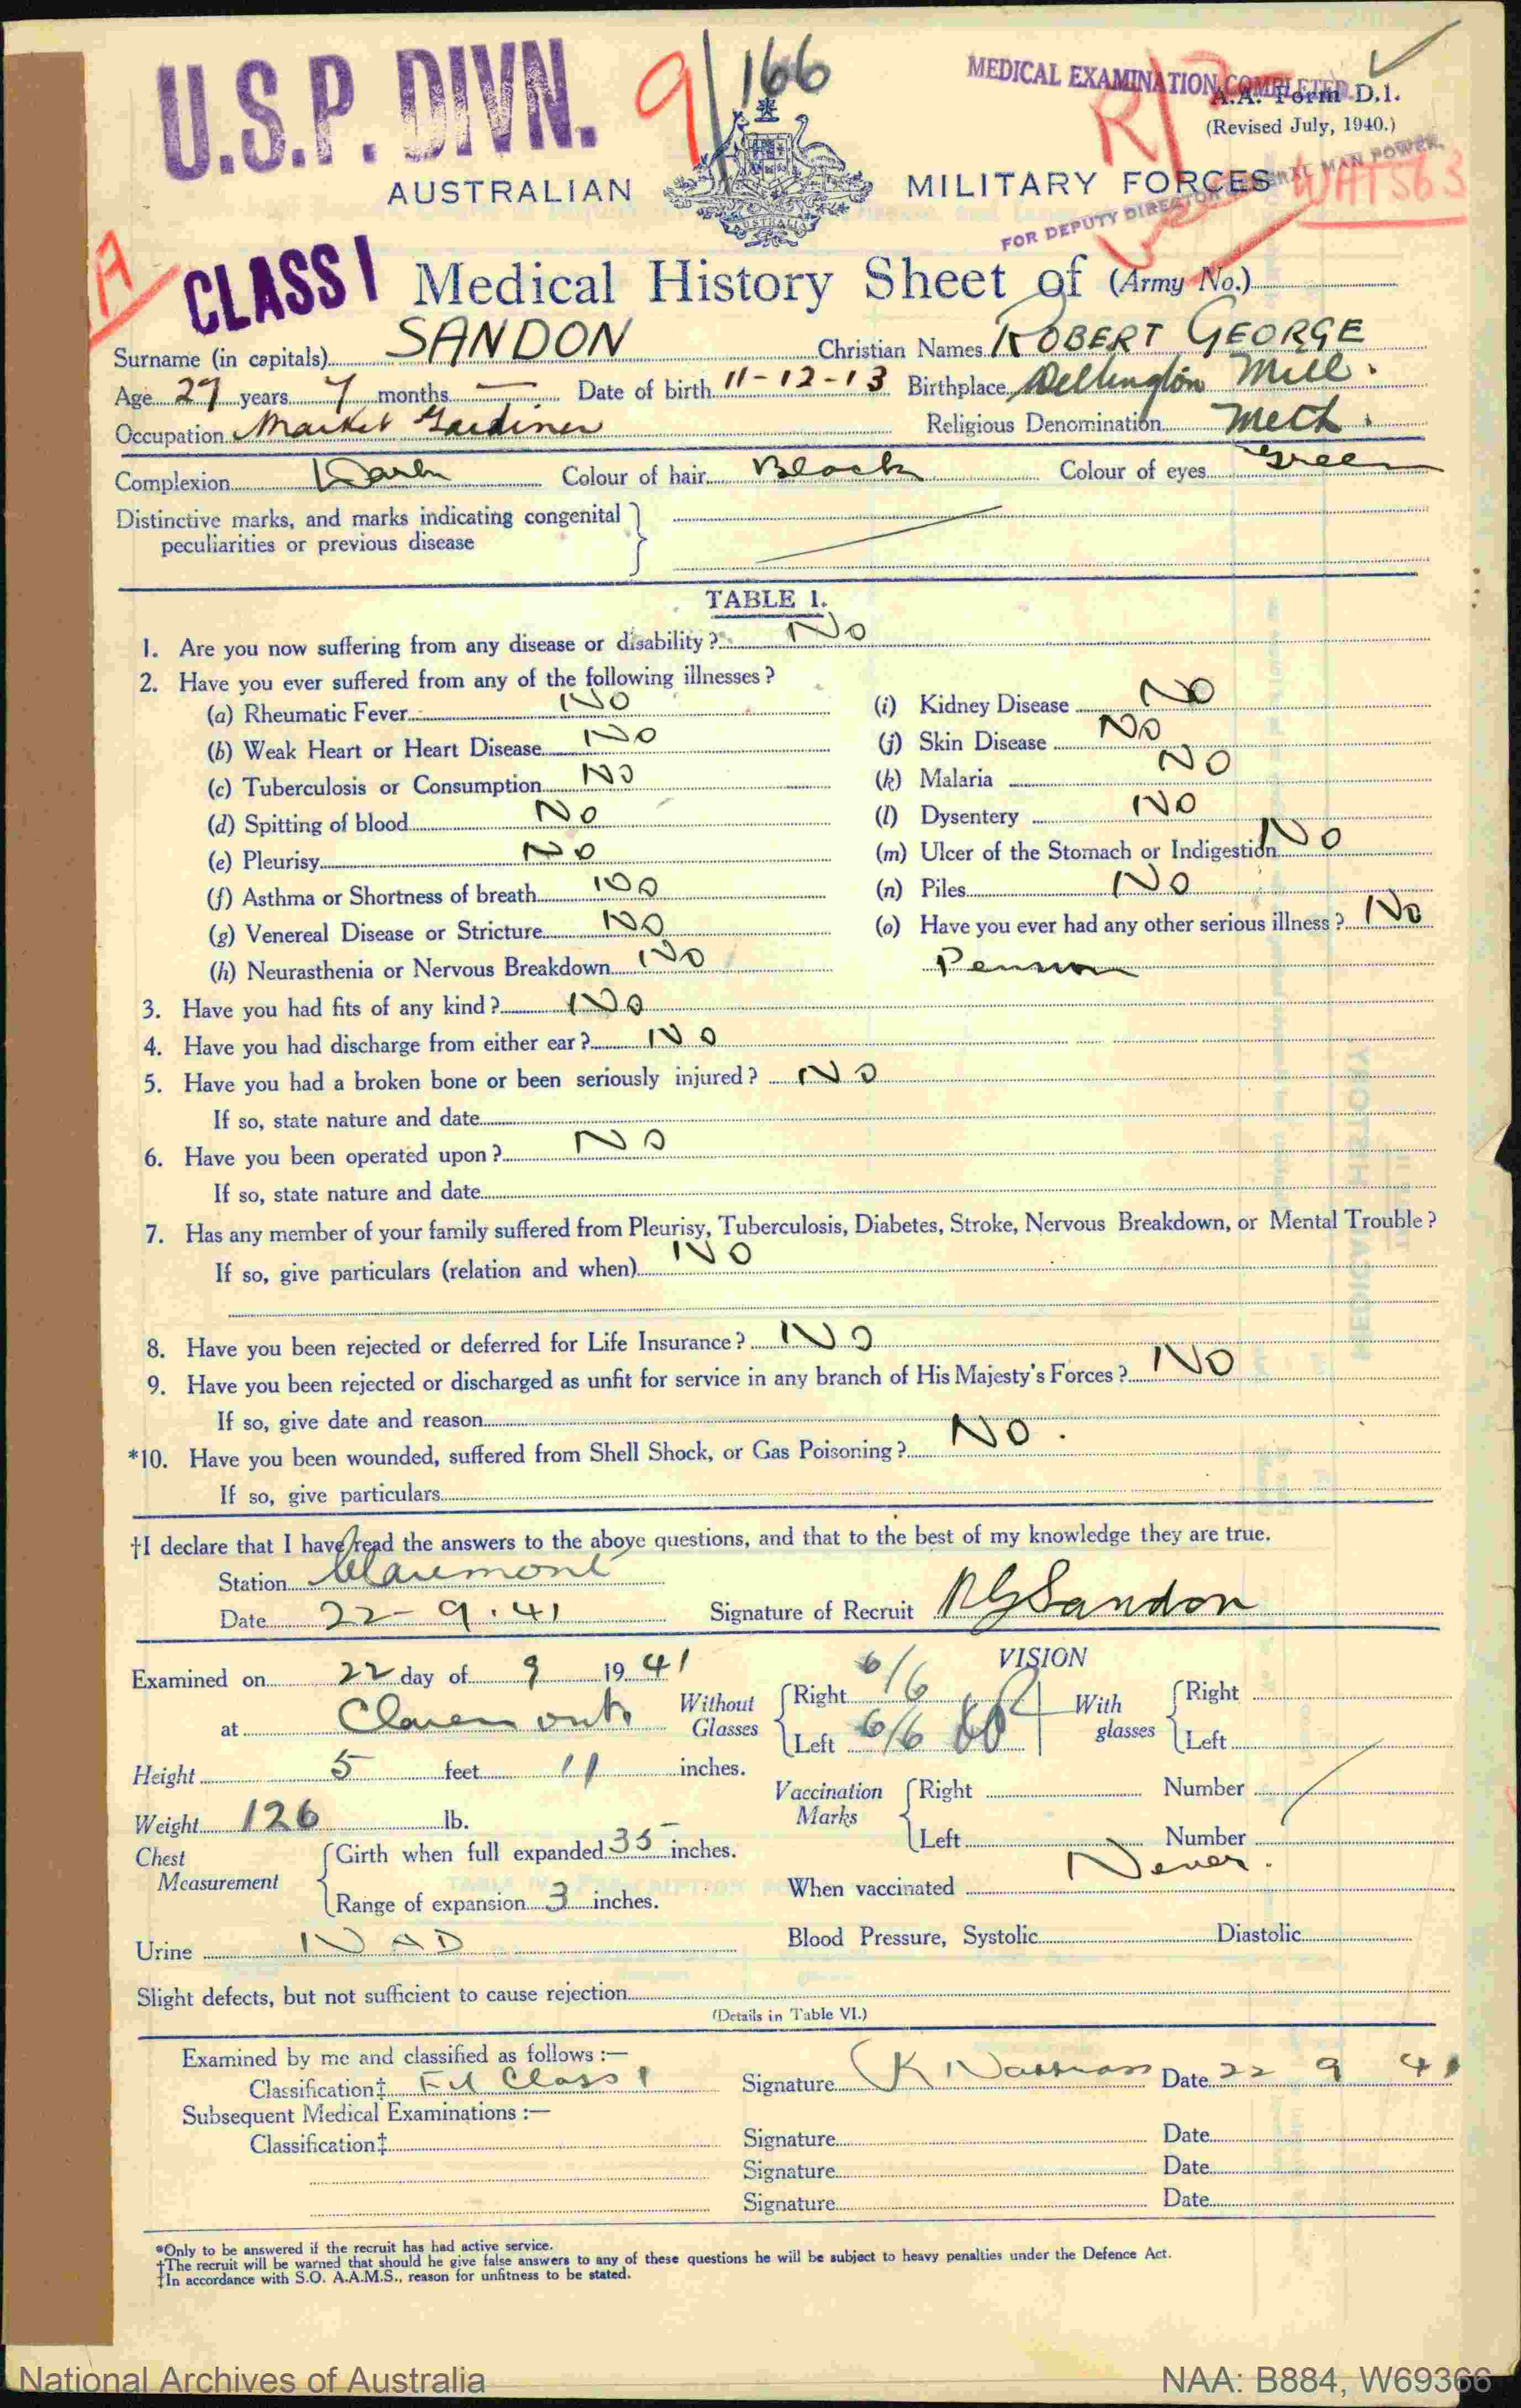 U.S.P. DIVN.
9/166
MEDICAL EXAMINATION COMPLETED
A.A. Form D.1.
(Revised July, 1940.)
FOR DEPUTY DIRECTOR GENERAL MAN POWER.
AUSTRALIAN MILITARY FORCES
A
CLASS I
Medical History Sheet of (Army No.)
Surname (in capitals) SANDON Christian Names ROBERT GEORGE
Age 27 years 7 months — Date of birth 11-12-13 Birthplace Wellington Mill.
Occupation Market Gardiner Religious Denomination Meth.
Complexion Dark Colour of hair Black Colour of eyes Green
Distinctive marks, and marks indicating congenital
peculiarities or previous disease
TABLE I.
1. Are you now suffering from any disease or disability? No
2. Have you ever suffered from any of the following illnesses?
(a) Rheumatic Fever No
(b) Weak Heart or Heart Disease No
(c) Tuberculosis or Consumption No
(d) Spitting of blood No
(e) Pleurisy No
(f) Asthma or Shortness of breath No
(g) Venereal Disease or Stricture No
(h) Neurasthenia or Nervous Breakdown No
(i) Kidney Disease No
(j) Skin Disease No
(k) Malaria No
(l) Dysentery No
(m) Ulcer of the Stomach or Indigestion No
(n) Piles No
(o) Have you ever had any other serious illness? No
Pension
3. Have you had fits of any kind? No
4. Have you had discharge from either ear? No
5. Have you had a broken bone or been seriously injured? No
If so, state nature and date
6. Have you been operated upon? No
If so, state nature and date
7. Has any member of your family suffered from Pleurisy, Tuberculosis, Diabetes, Stroke, Nervous Breakdown, or Mental Trouble?
If so, give particulars (relation and when) No
8. Have you been rejected or deferred for Life Insurance? No
9. Have you been rejected or discharged as unfit for service in any branch of His Majesty's Forces? No
If so, give date and reason
*10. Have you been wounded, suffered from Shell Shock, or Gas Poisoning? No.
If so, give particulars
†I declare that I have read the answers to the above questions, and that to the best of my knowledge they are true.
Station Claremont
Date 22-9.41 Signature of Recruit RGSandon
Examined on 22 day of 9 1941
at Claremont
Height 5 feet 11 inches.
Weight 126 lb.
Chest Measurement
Girth when full expanded 35 inches.
Range of expansion 3 inches.
Urine NAD
VISION
Without Glasses Right 6/6 Left 6/6
With glasses Right Left
Vaccination Marks Right Number
Left Number
When vaccinated Never.
Blood Pressure, Systolic Diastolic
Slight defects, but not sufficient to cause rejection
(Details in Table VI.)
Examined by me and classified as follows:—
Classification‡ Fit Class 1 Signature K Date 22 9 41
Subsequent Medical Examinations:—
Classification‡ Signature Date
Signature Date
Signature Date
*Only to be answered if the recruit has had active service.
†The recruit will be warned that should he give false answers to any of these questions he will be subject to heavy penalties under the Defence Act.
‡In accordance with S.O. A.A.M.S., reason for unfitness to be stated.
National Archives of Australia NAA: B884, W69366